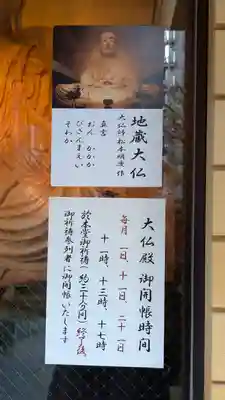 地蔵大仏
大仏師 松本明慶作
真言
おん かかか
びさんまえい
そわか
大仏殿 御開帳時間
毎月 一日、十一日、二十一日
十一時、十三時、十七時
於本堂御祈祷(約二十分間)終了後、
御祈祷参列者に御開帳いたします